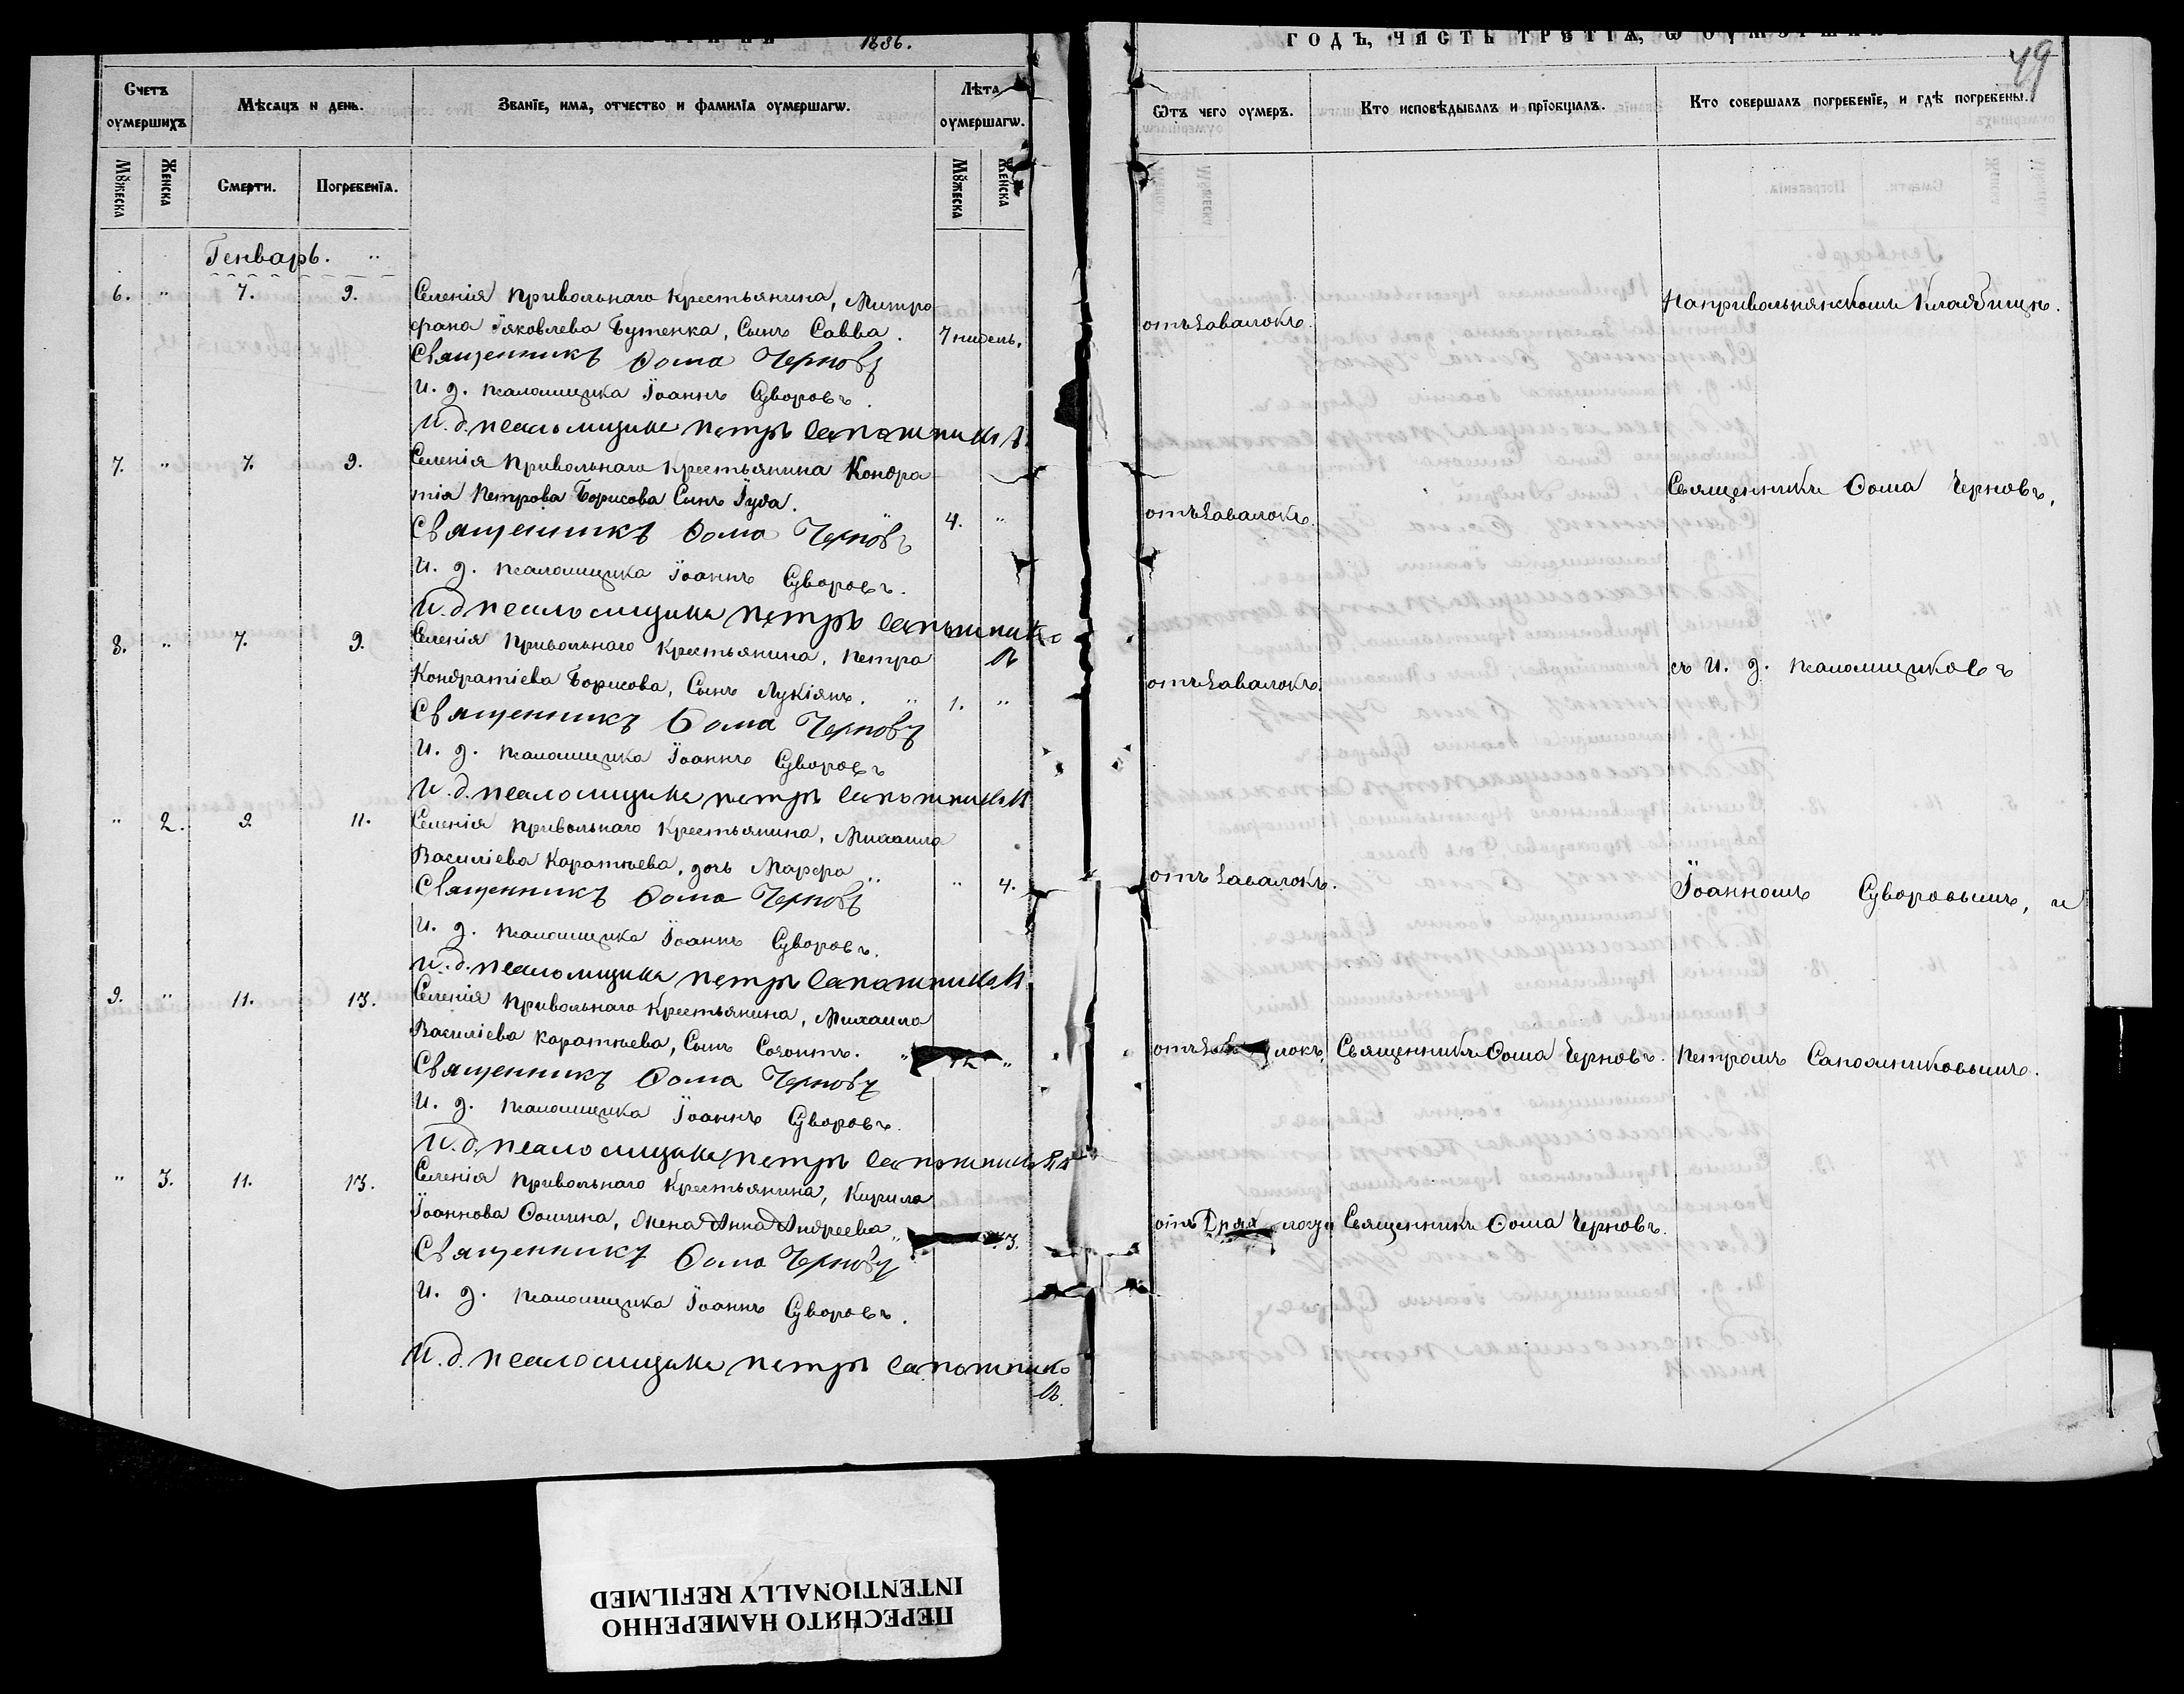 1886.
ГОДЪ, ЧАСТЬ ТРЕТІѦ, Ѡ ОУМЕРШИХЪ
49
Счетъ оумершихъ
Мѣсѧцъ и день.
Званїе, имѧ, отчество и фамилїѧ оумершагѡ.
Лѣта оумершагѡ.
Ѿтъ чего оумеръ.
Кто исповѣдывалъ и прїобщалъ.
Кто совершалъ погребенїе, и гдѣ погребены.
Мꙋжеска
Женска
Смерти.
Погребенїѧ.
Мꙋжеска
Женска
Генварь. "
6. " 7. 9. Селенія Привольнаго Крестьянина, Митро
фана Іяковлева Бутенка, Сынъ Савва. 7 нидель. отъ Завалокъ. На привольнянскомъ Кладбищѣ.
Священникъ Ѳома Черновъ
И. д. псаломщика Іоаннъ Суворовъ.
И. д. псаломщика петръ сапожниковъ
7. " 7. 9. Селенія Привольнаго Крестьянина Кондра
тія Петрова Борисова Сынъ Іуда. 4. " отъ Завалокъ. Священникъ Ѳома Черновъ,
Священникъ Ѳома Черновъ
И. д. псаломщика Іоаннъ Суворовъ.
И. д. псаломщика петръ сапожников
ъ
8. " 7. 9. Селенія Привольнаго Крестьянина, Петра
Кондратіева Борисова, Сынъ Лукіянъ. " 1. " отъ Завалокъ. съ И. д. псаломщиковъ
Священникъ Ѳома Черновъ
И. д. псаломщика Іоаннъ Суворовъ
И. д. псаломщика петръ сапожниковъ
" 2. 9. 11. Селенія Привольнаго Крестьянина, Михаила
Василіева Каратѣева, дочь Марфа " " 4. отъ Завалокъ. Іоанномъ Суворовымъ, и
Священникъ Ѳома Черновъ
И. д. псаломщика Іоаннъ Суворовъ.
И. д. псаломщика петръ сапожниковъ
9. " 11. 13. Селенія Привольнаго Крестьянина, Михаила
Василіева Каратѣева, Сынъ Созонтъ. " 12 " отъ Завалокъ. Священникъ Ѳома Черновъ. Петромъ Сапожниковымъ.
Священникъ Ѳома Черновъ
И. д. псаломщика Іоаннъ Суворовъ.
И. д. псаломщика петръ сапожниковъ
" 3. 11. 13. Селенія Привольнаго Крестьянина, Кирила
Іоаннова Ѳомина, Жена Анна Андреева " 73. отъ Священникъ Ѳома Черновъ.
Священникъ Ѳома Черновъ
И. д. псаломщика Іоаннъ Суворовъ.
И. д. псаломщика петръ сапожнико
въ.
ПЕРЕСНЯТО НАМЕРЕННО
INTENTIONALLY REFILMED